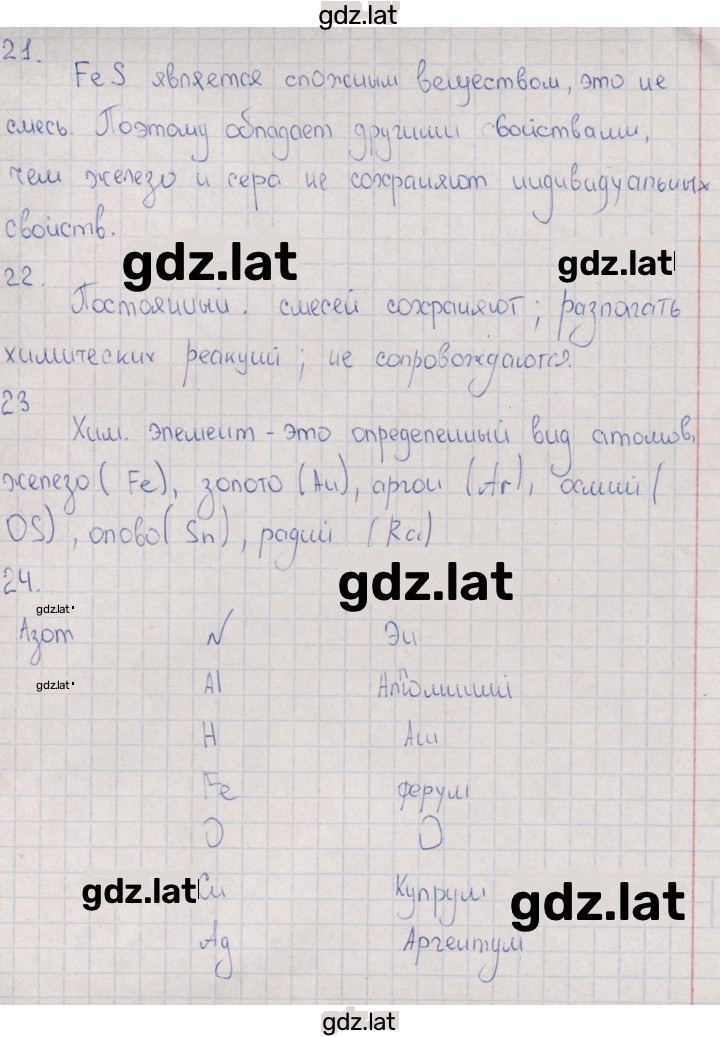 gdz.lat
21.
FeS является сложным веществом, это не
смесь. Поэтому обладает другими свойствами,
чем железо и сера не сохраняют индивидуальных
свойств.
gdz.lat gdz.lat
22.
Постоянный. смесей сохраняют; разлагать
химических реакций; не сопровождаются.
23
Хим. элемент - это определенный вид атомов,
железо (Fe), золото (Au), аргон (Ar), осмий (
OS), олово (Sn), радий (Ra)
gdz.lat
24.
gdz.lat
Азот N Эн
gdz.lat
Al Алюминий
H Аш
Fe ферум
O O
gdz.lat Cu Купрум gdz.lat
Ag Аргентум
gdz.lat